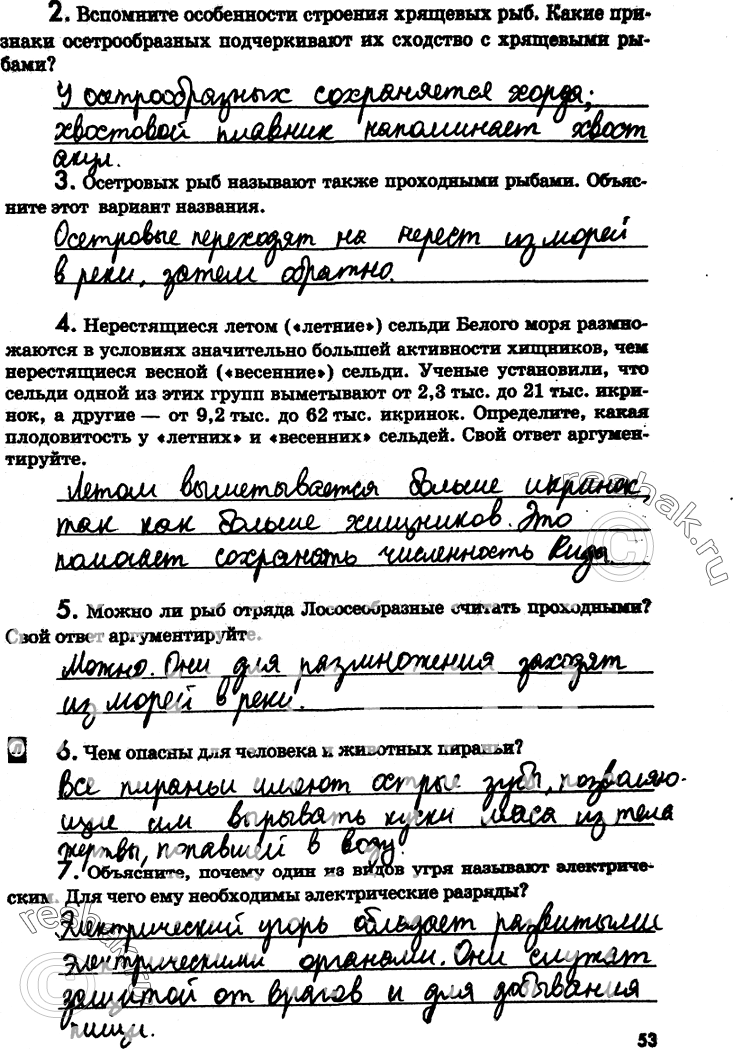 2. Вспомните особенности строения хрящевых рыб. Какие при-
знаки осетрообразных подчеркивают их сходство с хрящевыми ры-
бами?
У осетрообразных сохраняется хорда;
хвостовой плавник напоминает хвост
акул.
3. Осетровых рыб называют также проходными рыбами. Объяс-
ните этот вариант названия.
Осетровые переходят на нерест из морей
в реки, затем обратно.
4. Нерестящиеся летом («летние») сельди Белого моря размно-
жаются в условиях значительно большей активности хищников, чем
нерестящиеся весной («весенние») сельди. Ученые установили, что
сельди одной из этих групп выметывают от 2,3 тыс. до 21 тыс. икри-
нок, а другие — от 9,2 тыс. до 62 тыс. икринок. Определите, какая
плодовитость у «летних» и «весенних» сельдей. Свой ответ аргумен-
тируйте.
Летом выметывается больше икринок,
так как больше хищников. Это
помогает сохранять численность вида.
5. Можно ли рыб отряда Лососеобразные считать проходными?
Свой ответ аргументируйте.
Можно. Они для размножения заходят
из морей в реки.
Л 6. Чем опасны для человека и животных пираньи?
Все пираньи имеют острые зубы, позволяю-
щие им вырывать куски мяса из тела
жертвы, попавшей в воду.
7. Объясните, почему один из видов угря называют электриче-
ским. Для чего ему необходимы электрические разряды?
Электрический угорь обладает развитыми
электрическими органами. Они служат
защитой от врагов и для добывания
пищи.
53
reshak.ru
reshak.ru